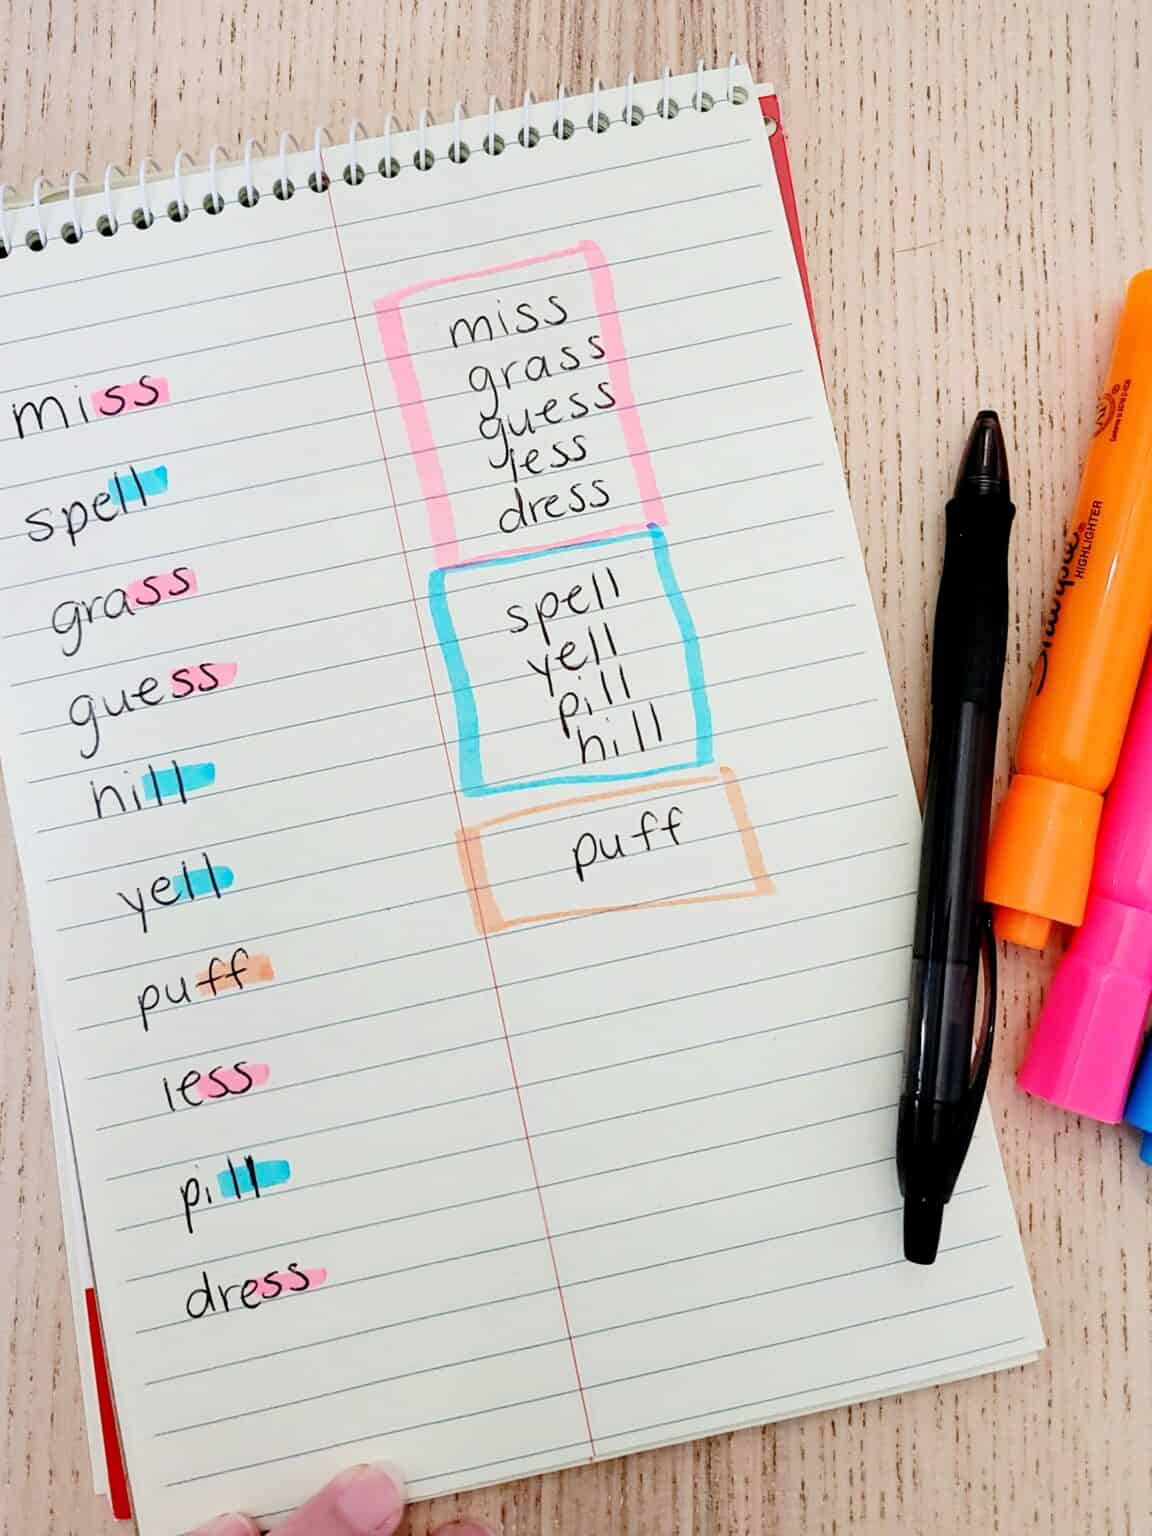 miss
spell
grass
guess
hill
yell
puff
less
pill
dress
miss
grass
guess
less
dress
spell
yell
pill
hill
puff
Sharpie
HIGHLIGHTER